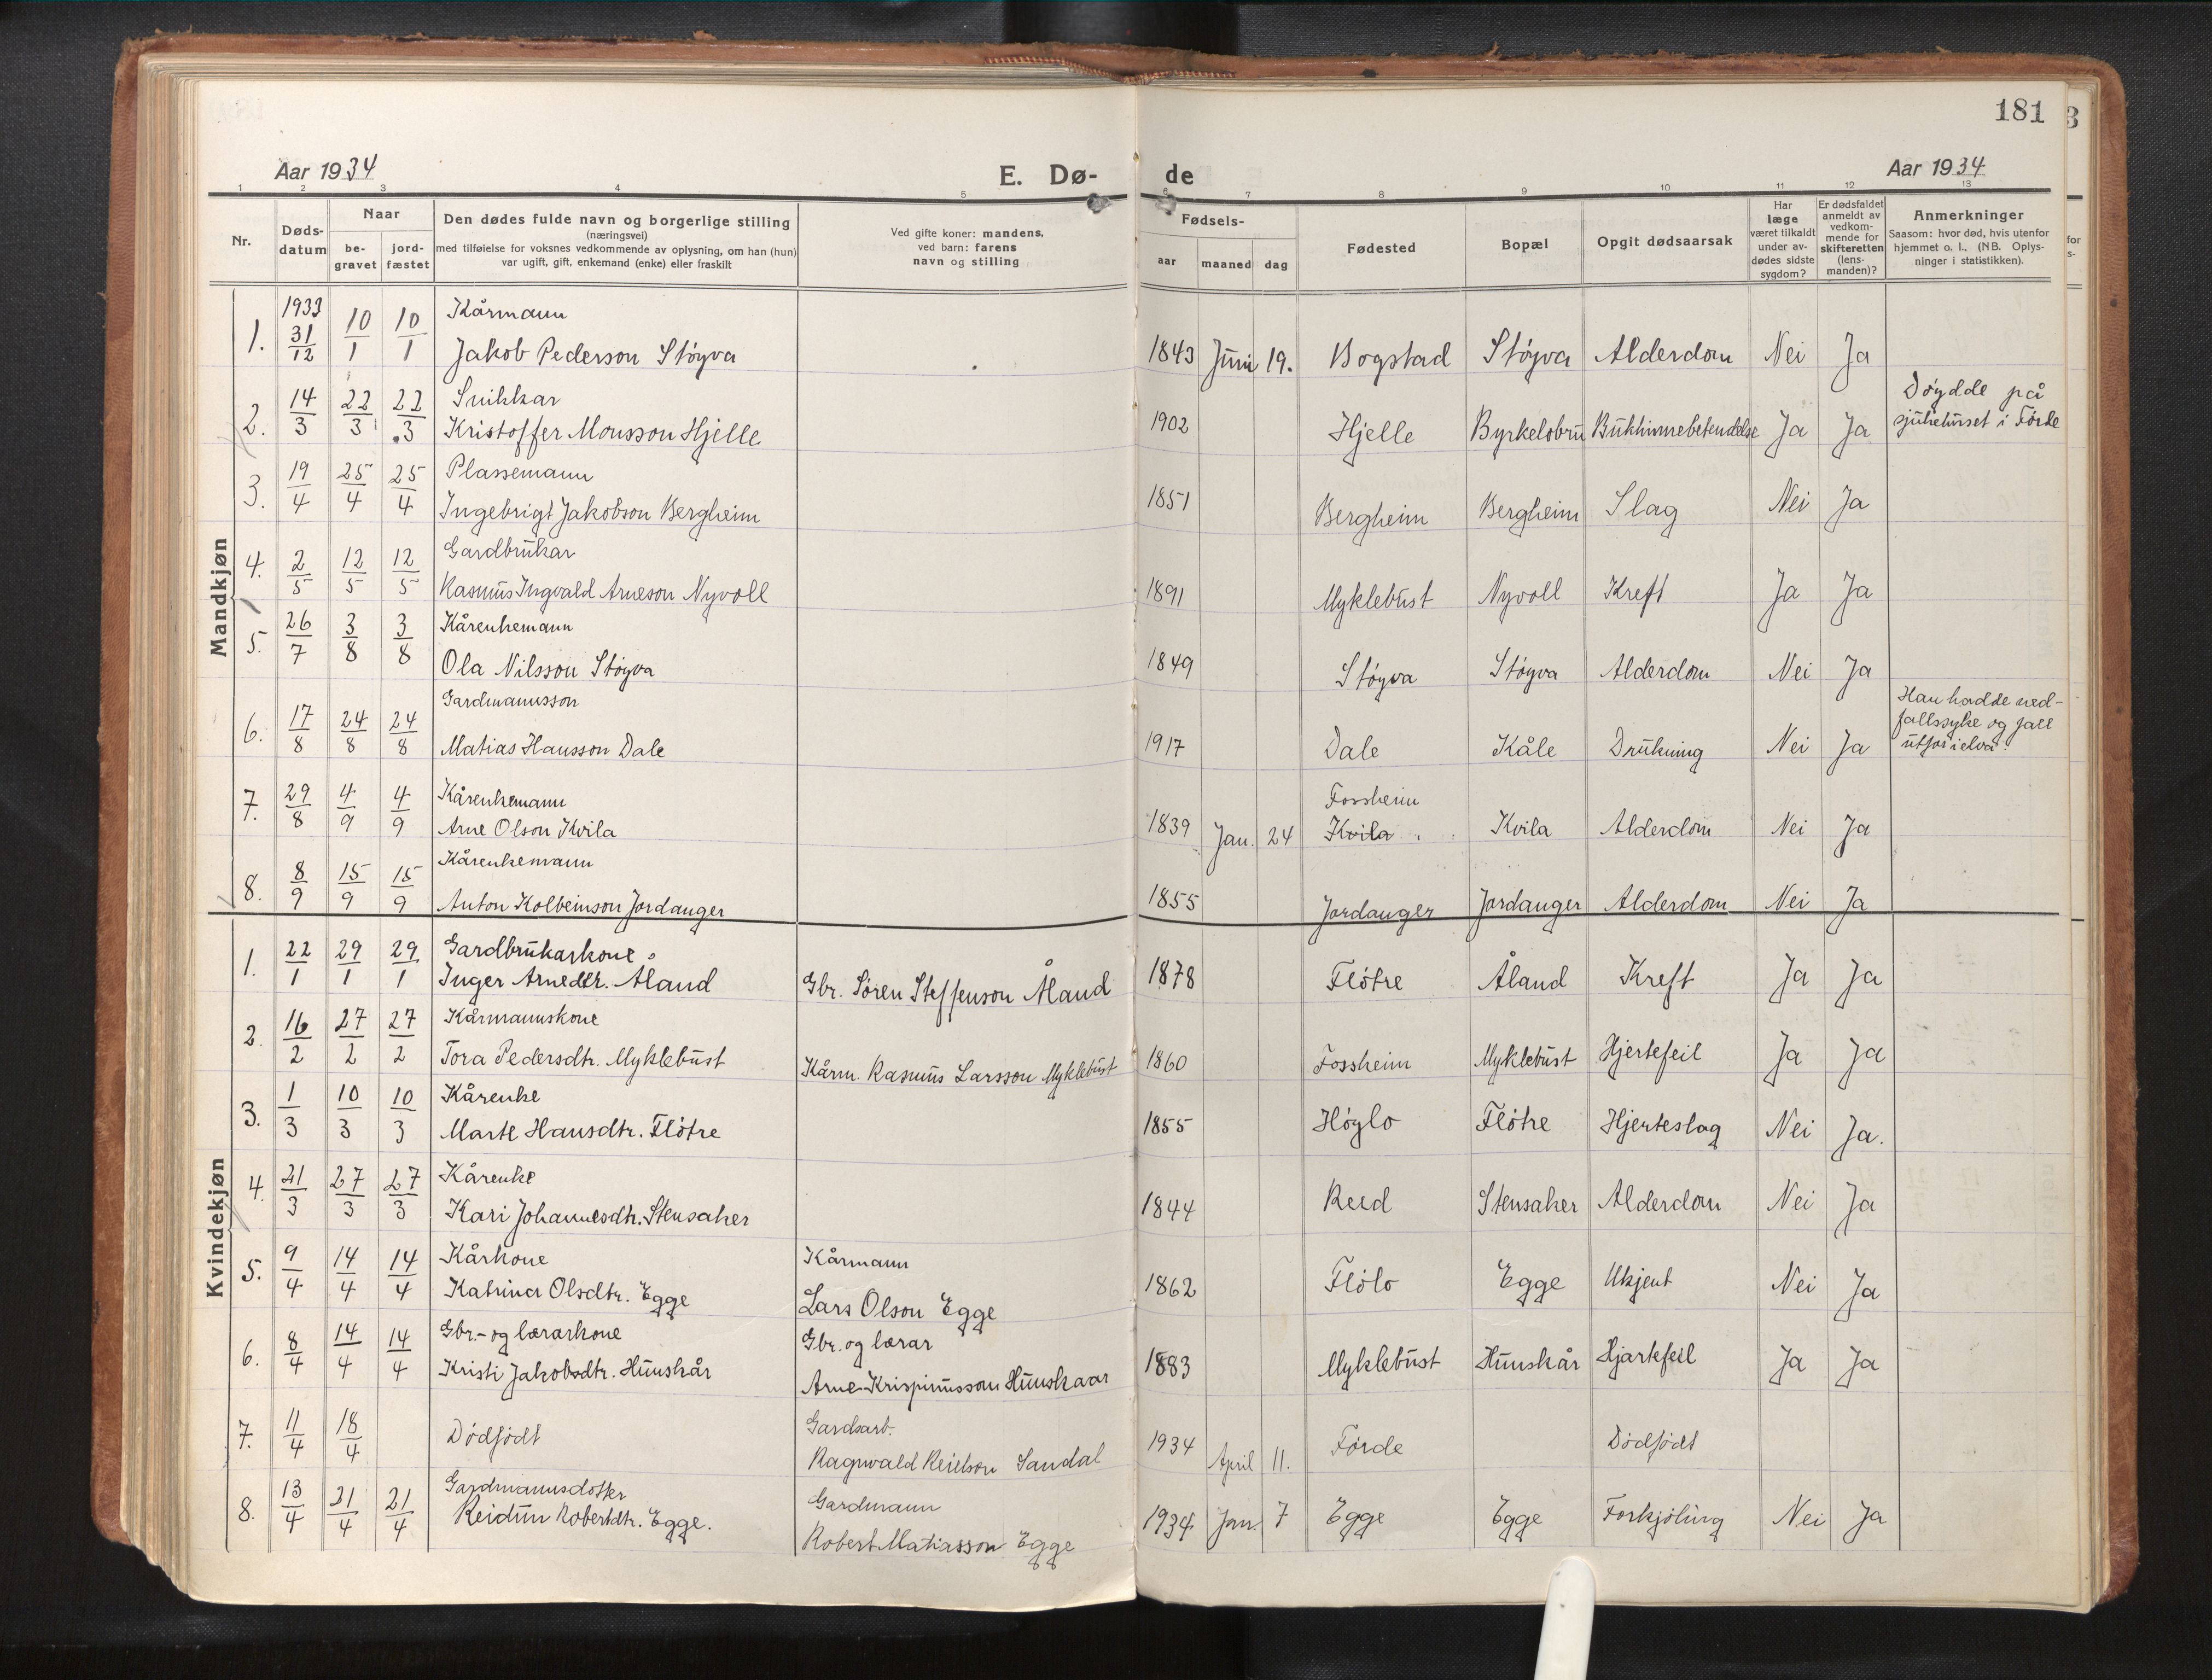 181
Aar 1934
E. Dø- de
Aar 1934
1 2 3 4 5 6 7 8 9 10 11 12 13
Nr.
Døds-
datum
Naar
be-
gravet
jord-
fæstet
Den dødes fulde navn og borgerlige stilling
(næringsvei)
med tilføielse for voksnes vedkommende av oplysning, om han (hun)
var ugift, gift, enkemand (enke) eller fraskilt
Ved gifte koner: mandens,
ved barn: farens
navn og stilling
Fødsels-
aar maaned dag
Fødested
Bopæl
Opgit dødsaarsak
Har
læge
været tilkaldt
under av-
dødes sidste
sygdom?
Er dødsfaldet
anmeldt av
vedkom-
mende for
skifteretten
(lens-
manden)?
Anmerkninger
Saasom: hvor død, hvis utenfor
hjemmet o. l., (NB. Oplys-
ninger i statistikken).
Mandkjøn
1933 Kårmann
1. 31/12 10/1 10/1 Jakob Pederson Støyva 1843 Juni 19. Bogstad Støyva Alderdom Nei Ja
Snikkar Døydde på
2. 14/3 22/3 22/3 Kristoffer Monsson Hjelle 1902 Hjelle Byrkelobru Bukhinnebetendelse Ja Ja sjukehuset i Førde
Plassemann
3. 19/4 25/4 25/4 Ingebrigt Jakobson Bergheim 1851 Bergheim Bergheim Slag Nei Ja
Gardbrukar
4. 2/5 12/5 12/5 Rasmus Ingvald Arneson Nyvoll 1891 Myklebust Nyvoll Kreft Ja Ja
Kårenkemann
5. 26/7 3/8 3/8 Ola Nilsson Støyva 1849 Støyva Støyva Alderdom Nei Ja
Gardmannsson Han hadde ned-
fallssyke og fall
6. 17/8 24/8 24/8 Matias Hansson Dale 1917 Dale Kåle Drukning Nei Ja utfor i elva.
Kårenkemann Fossheim
7. 29/8 4/9 4/9 Arne Olson Kvila 1839 Jan. 24 Kvila Kvila Alderdom Nei Ja
Kårenkemann
8. 8/9 15/9 15/9 Anton Kolbeinson Jordanger 1855 Jordanger Jordanger Alderdom Nei Ja
Kvindekjøn
Gardbrukarkone
1. 22/1 29/1 29/1 Inger Arnedtr. Åland Gbr. Søren Steffenson Åland 1878 Fløtre Åland Kreft Ja Ja
Kårmannskone
2. 16/2 27/2 27/2 Tora Pedersdtr. Myklebust Kårm. Rasmus Larsson Myklebust 1860 Fossheim Myklebust Hjertefeil Ja Ja
Kårenke
3. 1/3 10/3 10/3 Marte Hansdtr. Fløtre 1855 Høylo Fløtre Hjerteslag Nei Ja.
Kårenke
4. 21/3 27/3 27/3 Kari Johannesdtr. Stensaker 1844 Reed Stensaker Alderdom Nei Ja
Kårkone Kårmann
5. 9/4 14/4 14/4 Katrina Olsdtr. Egge Lars Olson Egge 1862 Flølo Egge Ukjent Nei Ja
Gbr.- og lærarkone Gbr. og lærar
6. 8/4 14/4 14/4 Kristi Jakobsdtr. Hunskår Arne Krispinusson Hunskaar 1883 Myklebust Hunskår Hjartefeil Ja Ja
Gardsarb.
7. 11/4 18/4 Dødfødt Ragnvald Reielson Sandal 1934 April 11. Førde Dødfødt
Gardmannsdotter Gardmann
8. 13/4 21/4 21/4 Reidun Robertdtr. Egge. Robert Matiasson Egge 1934 Jan. 7 Egge Egge Forkjøling Nei Ja